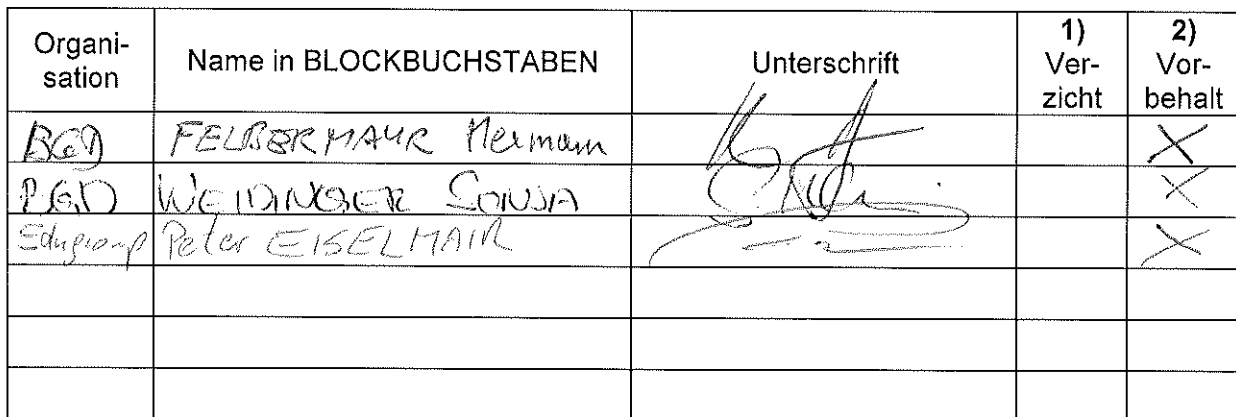 Organi-
sation
Name in BLOCKBUCHSTABEN
Unterschrift
1)
Ver-
zicht
2)
Vor-
behalt
BGD FELBERMAYR Hermann X
WEIDINGER SONJA X
Edugroup Peter EISELMAIR X